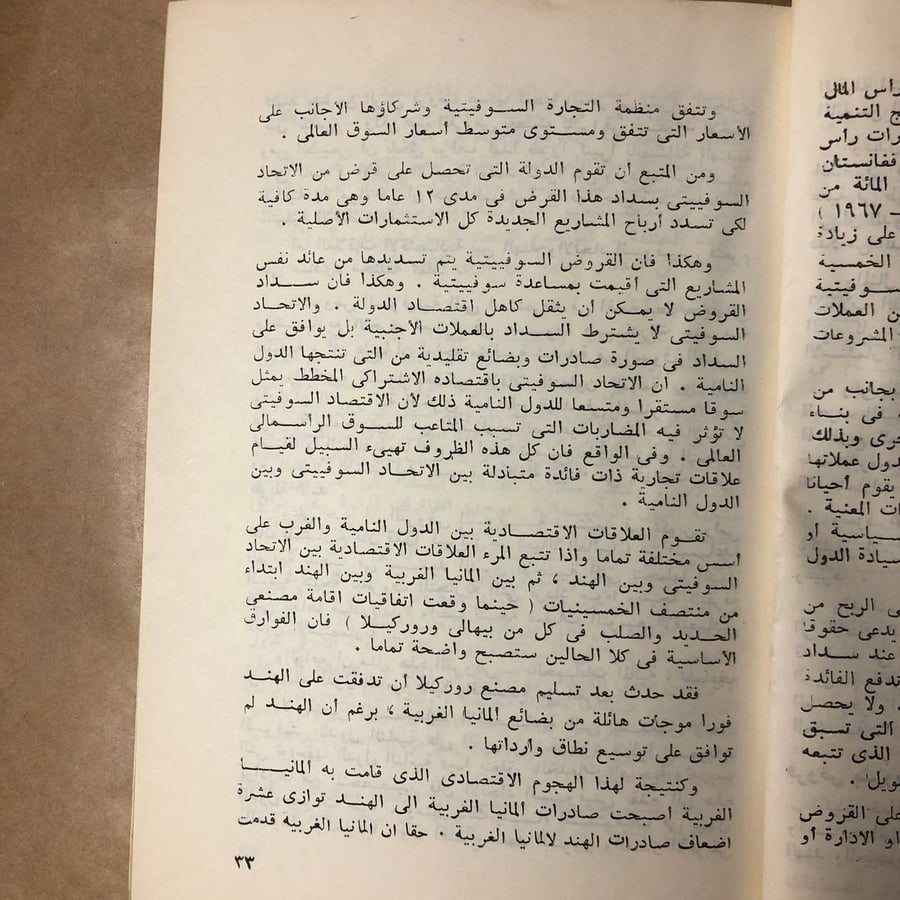 وتتفق منظمة التجارة السوفيتية وشركاؤها الأجانب على
الأسعار التى تتفق ومستوى متوسط أسعار السوق العالمى .
ومن المتبع أن تقوم الدولة التى تحصل على قرض من الاتحاد
السوفييتى بسداد هذا القرض فى مدى ١٢ عاما وهى مدة كافية
لكى تسدد أرباح المشاريع الجديدة كل الاستثمارات الأصلية .
وهكذا فان القروض السوفييتية يتم تسديدها من عائد نفس
المشاريع التى أقيمت بمساعدة سوفييتية . وهكذا فان سداد
القروض لا يمكن أن يثقل كاهل اقتصاد الدولة . والاتحاد
السوفيتى لا يشترط السداد بالعملات الأجنبية بل يوافق على
السداد فى صورة صادرات وبضائع تقليدية من التى تنتجها الدول
النامية . ان الاتحاد السوفيتى باقتصاده الاشتراكى المخطط يمثل
سوقا مستقرا ومتسعا للدول النامية ذلك لأن الاقتصاد السوفيتى
لا تؤثر فيه المضاربات التى تسبب المتاعب للسوق الراسمالى
العالمى . وفى الواقع فان كل هذه الظروف تهيىء السبيل لقيام
علاقات تجارية ذات فائدة متبادلة بين الاتحاد السوفييتى وبين
الدول النامية .
تقوم العلاقات الاقتصادية بين الدول النامية والغرب على
أسس مختلفة تماما واذا تتبع المرء العلاقات الاقتصادية بين الاتحاد
السوفيتى وبين الهند ، ثم بين المانيا الغربية وبين الهند ابتداء
من منتصف الخمسينيات ( حينما وقعت اتفاقيات اقامة مصنعى
الحديد والصلب فى كل من بيهالى وروركيلا ) فان الفوارق
الأساسية فى كلا الحالين ستصبح واضحة تماما .
فقد حدث بعد تسليم مصنع روركيلا أن تدفقت على الهند
فورا موجات هائلة من بضائع المانيا الغربية ، برغم أن الهند لم
توافق على توسيع نطاق وارداتها .
وكنتيجة لهذا الهجوم الاقتصادى الذى قامت به المانيا
الغربية أصبحت صادرات المانيا الغربية الى الهند توازى عشرة
اضعاف صادرات الهند لالمانيا الغربية . حقا ان المانيا الغربية قدمت
٣٣
راس المال
ج التنمية
رات راس
فغانستان
المائة من
ـ ١٩٦٧ )
على زيادة
الخمسية
سوفيتية
ن العملات
المشروعات
بجانب من
ة فى بناء
خرى وبذلك
دول عملاتها
يقوم أحيانا
ات المعنية .
سياسية أو
سيادة الدول
ى الربح من
يدعى حقوقا
عند سداد
تدفع الفائدة
. ولا يحصل
التى تسبق
الذى تتبعه
مويل .
على القروض
او الادارة أو